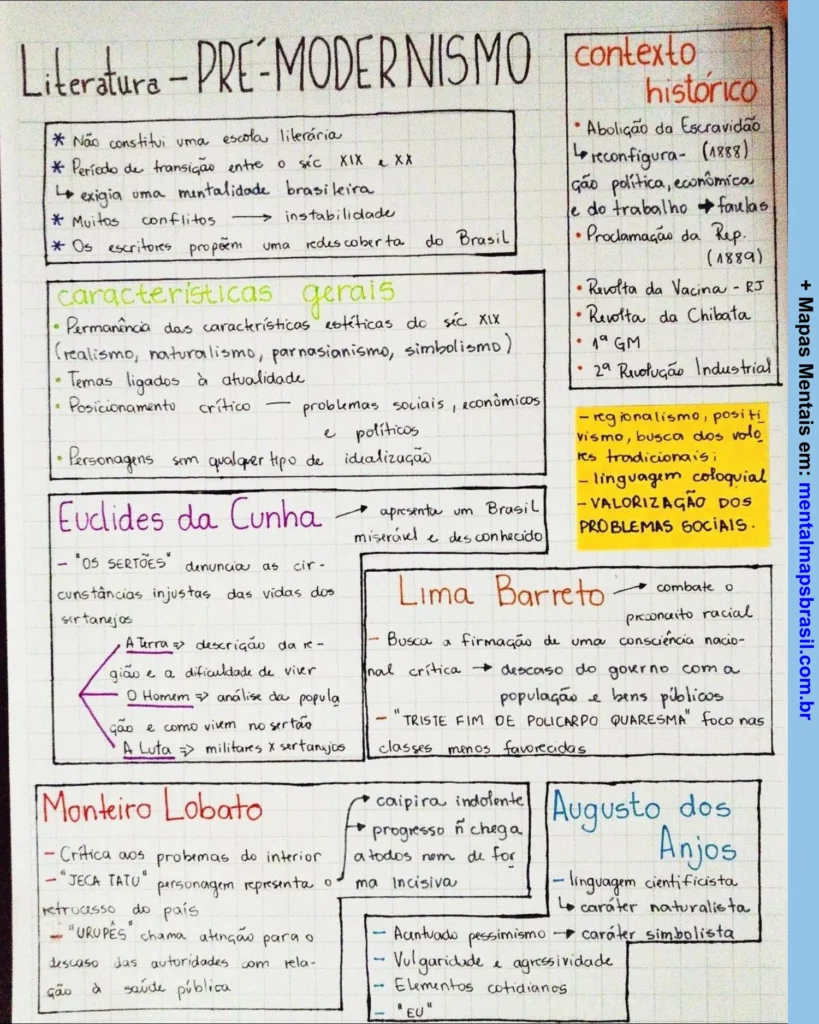 Literatura – PRÉ-MODERNISMO
* Não constitui uma escola literária
* Período de transição entre o séc XIX e XX
↳ exigia uma mentalidade brasileira
* Muitos conflitos → instabilidade
* Os escritores propõem uma redescoberta do Brasil
contexto
histórico
• Abolição da Escravidão
↳ reconfigura- (1888)
ção política, econômica
e do trabalho → favelas
• Proclamação da Rep.
(1889)
• Revolta da Vacina - RJ
• Revolta da Chibata
• 1ª GM
• 2ª Revolução Industrial
características gerais
• Permanência das características estéticas do séc XIX
(realismo, naturalismo, parnasianismo, simbolismo)
• Temas ligados à atualidade
• Posicionamento crítico — problemas sociais, econômicos
e políticos
• Personagens sem qualquer tipo de idealização
– regionalismo, positi
vismo, busca dos valo
res tradicionais;
– linguagem coloquial
– VALORIZAÇÃO DOS
PROBLEMAS SOCIAIS.
Euclides da Cunha → apresenta um Brasil
miserável e desconhecido
– "OS SERTÕES" denuncia as cir-
cunstâncias injustas das vidas dos
sertanejos
A Terra => descrição da re-
gião e a dificuldade de viver
O Homem => análise da popula
ção e como vivem no sertão
A Luta => militares x sertanejos
Lima Barreto → combate o
preconceito racial
– Busca a firmação de uma consciência nacio-
nal crítica → descaso do governo com a
população e bens públicos
– "TRISTE FIM DE POLICARPO QUARESMA" foco nas
classes menos favorecidas
Monteiro Lobato
– Crítica aos probemas do interior
– "JECA TATU" personagem representa o
retrocesso do país
– "URUPÊS" chama atenção para o
descaso das autoridades com rela-
ção à saúde pública
→ caipira indolente
→ progresso ñ chega
a todos nem de for
ma incisiva
Augusto dos
Anjos
– linguagem cientificista
↳ caráter naturalista
– Acentuado pessimismo → caráter simbolista
– Vulgaridade e agressividade
– Elementos cotidianos
– "EU"
+ Mapas Mentais em: mentalmapsbrasil.com.br